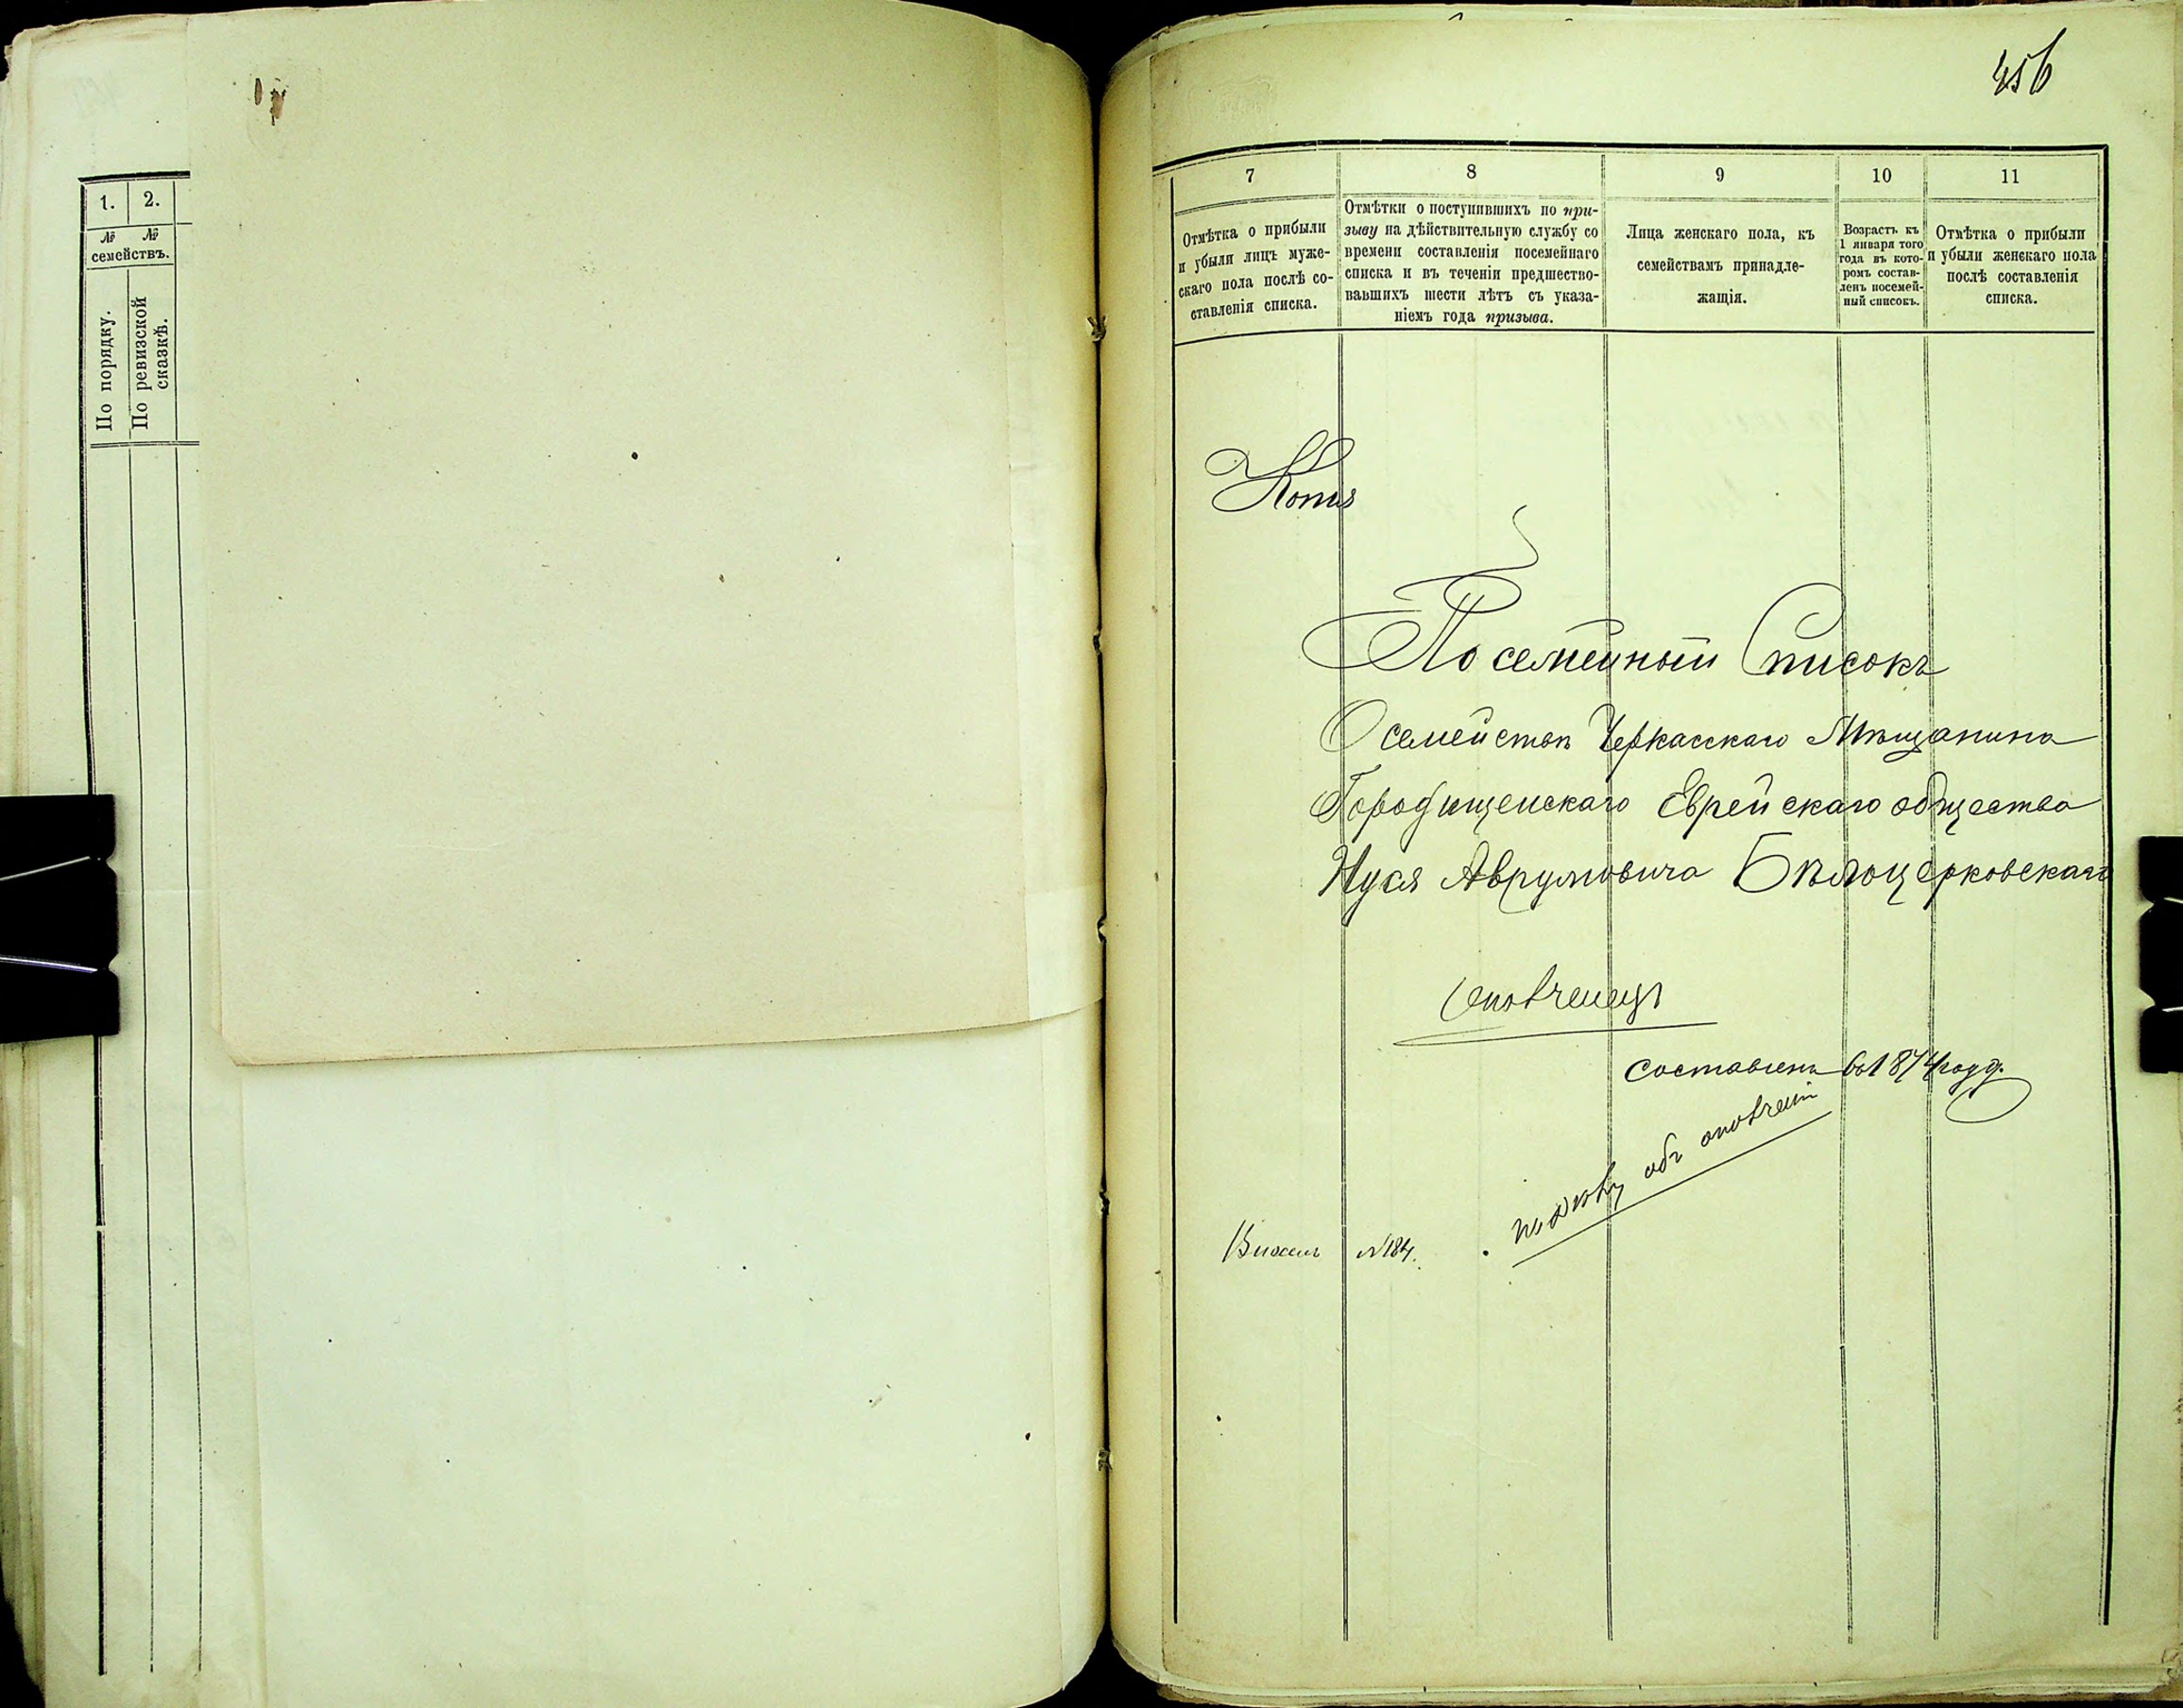 1.
2.
№ №
семействъ.
По порядку.
По ревизской
сказкѣ.
456
7
8
9
10
11
Отмѣтка о прибыли
и убыли лицъ муже-
скаго пола послѣ со-
ставленія списка.
Отмѣтки о поступившихъ по при-
зыву на дѣйствительную службу со
времени составленія посемейнаго
списка и въ теченіи предшество-
вавшихъ шести лѣтъ съ указа-
ніемъ года призыва.
Лица женскаго пола, къ
семействамъ принадле-
жащія.
Возрастъ къ
1 января того
года въ кото-
ромъ состав-
ленъ посемей-
ный списокъ.
Отмѣтка о прибыли
и убыли женскаго пола
послѣ составленія
списка.
Копія
Посемейный Списокъ
О семействѣ Черкасскаго Мѣщанина
Городищенскаго Еврейскаго общества
Нуся Аврумовича Бѣлоцерковскаго
составленъ въ 1874 году.
№184.